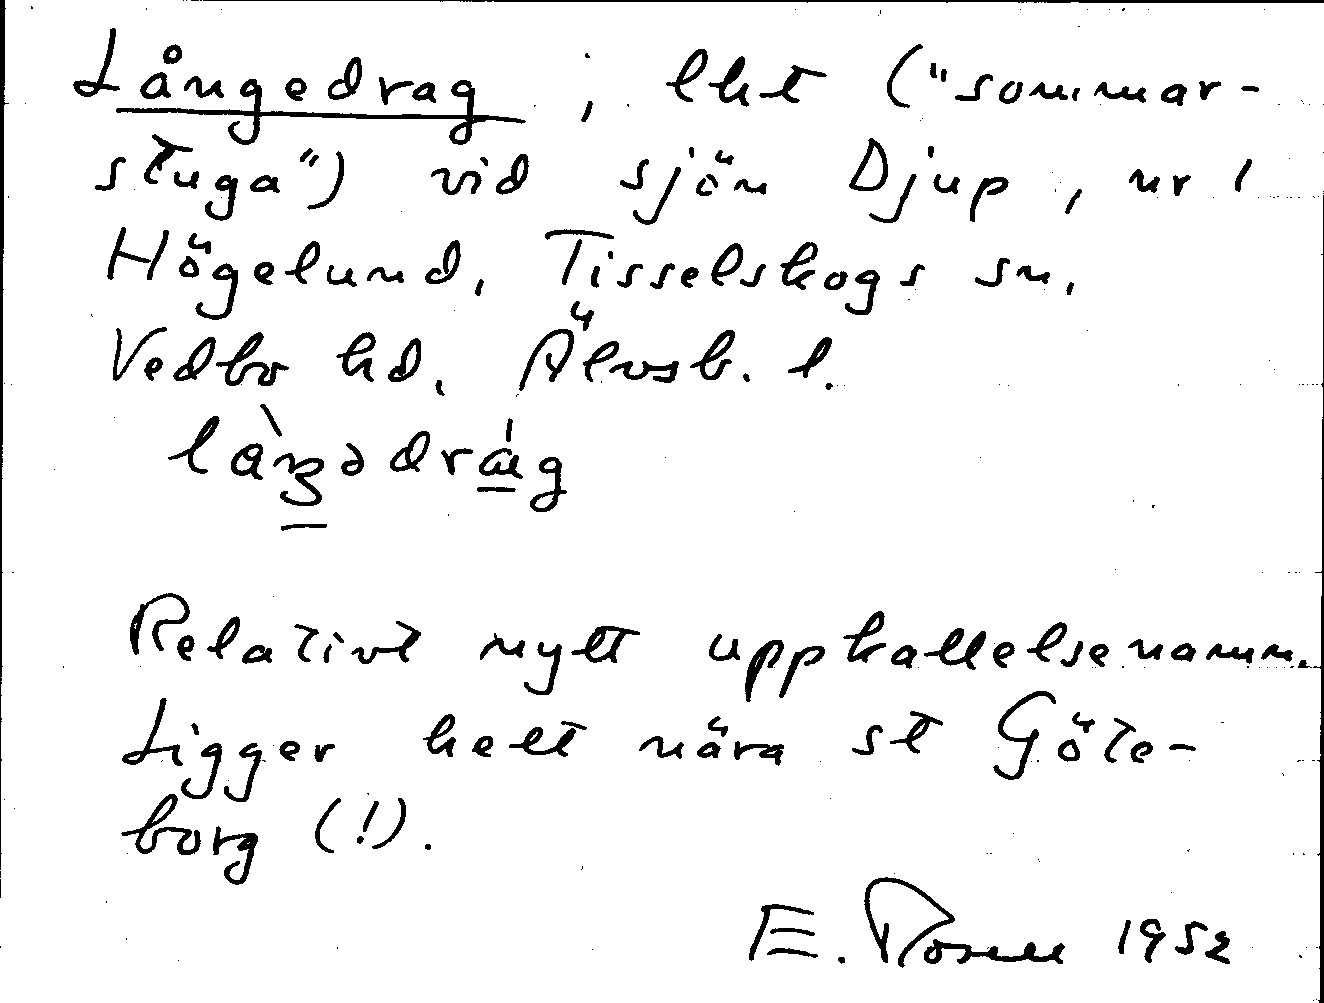 Långedrag, lht ("sommar-
stuga") vid sjön Djup, ur 1
Högelund, Tisselskogs sn,
Vedbo hd, Älvsb. l.
Relativt nytt uppkallelsenamn.
Ligger helt nära st Göte-
borg (!).
E. Rosell 1952